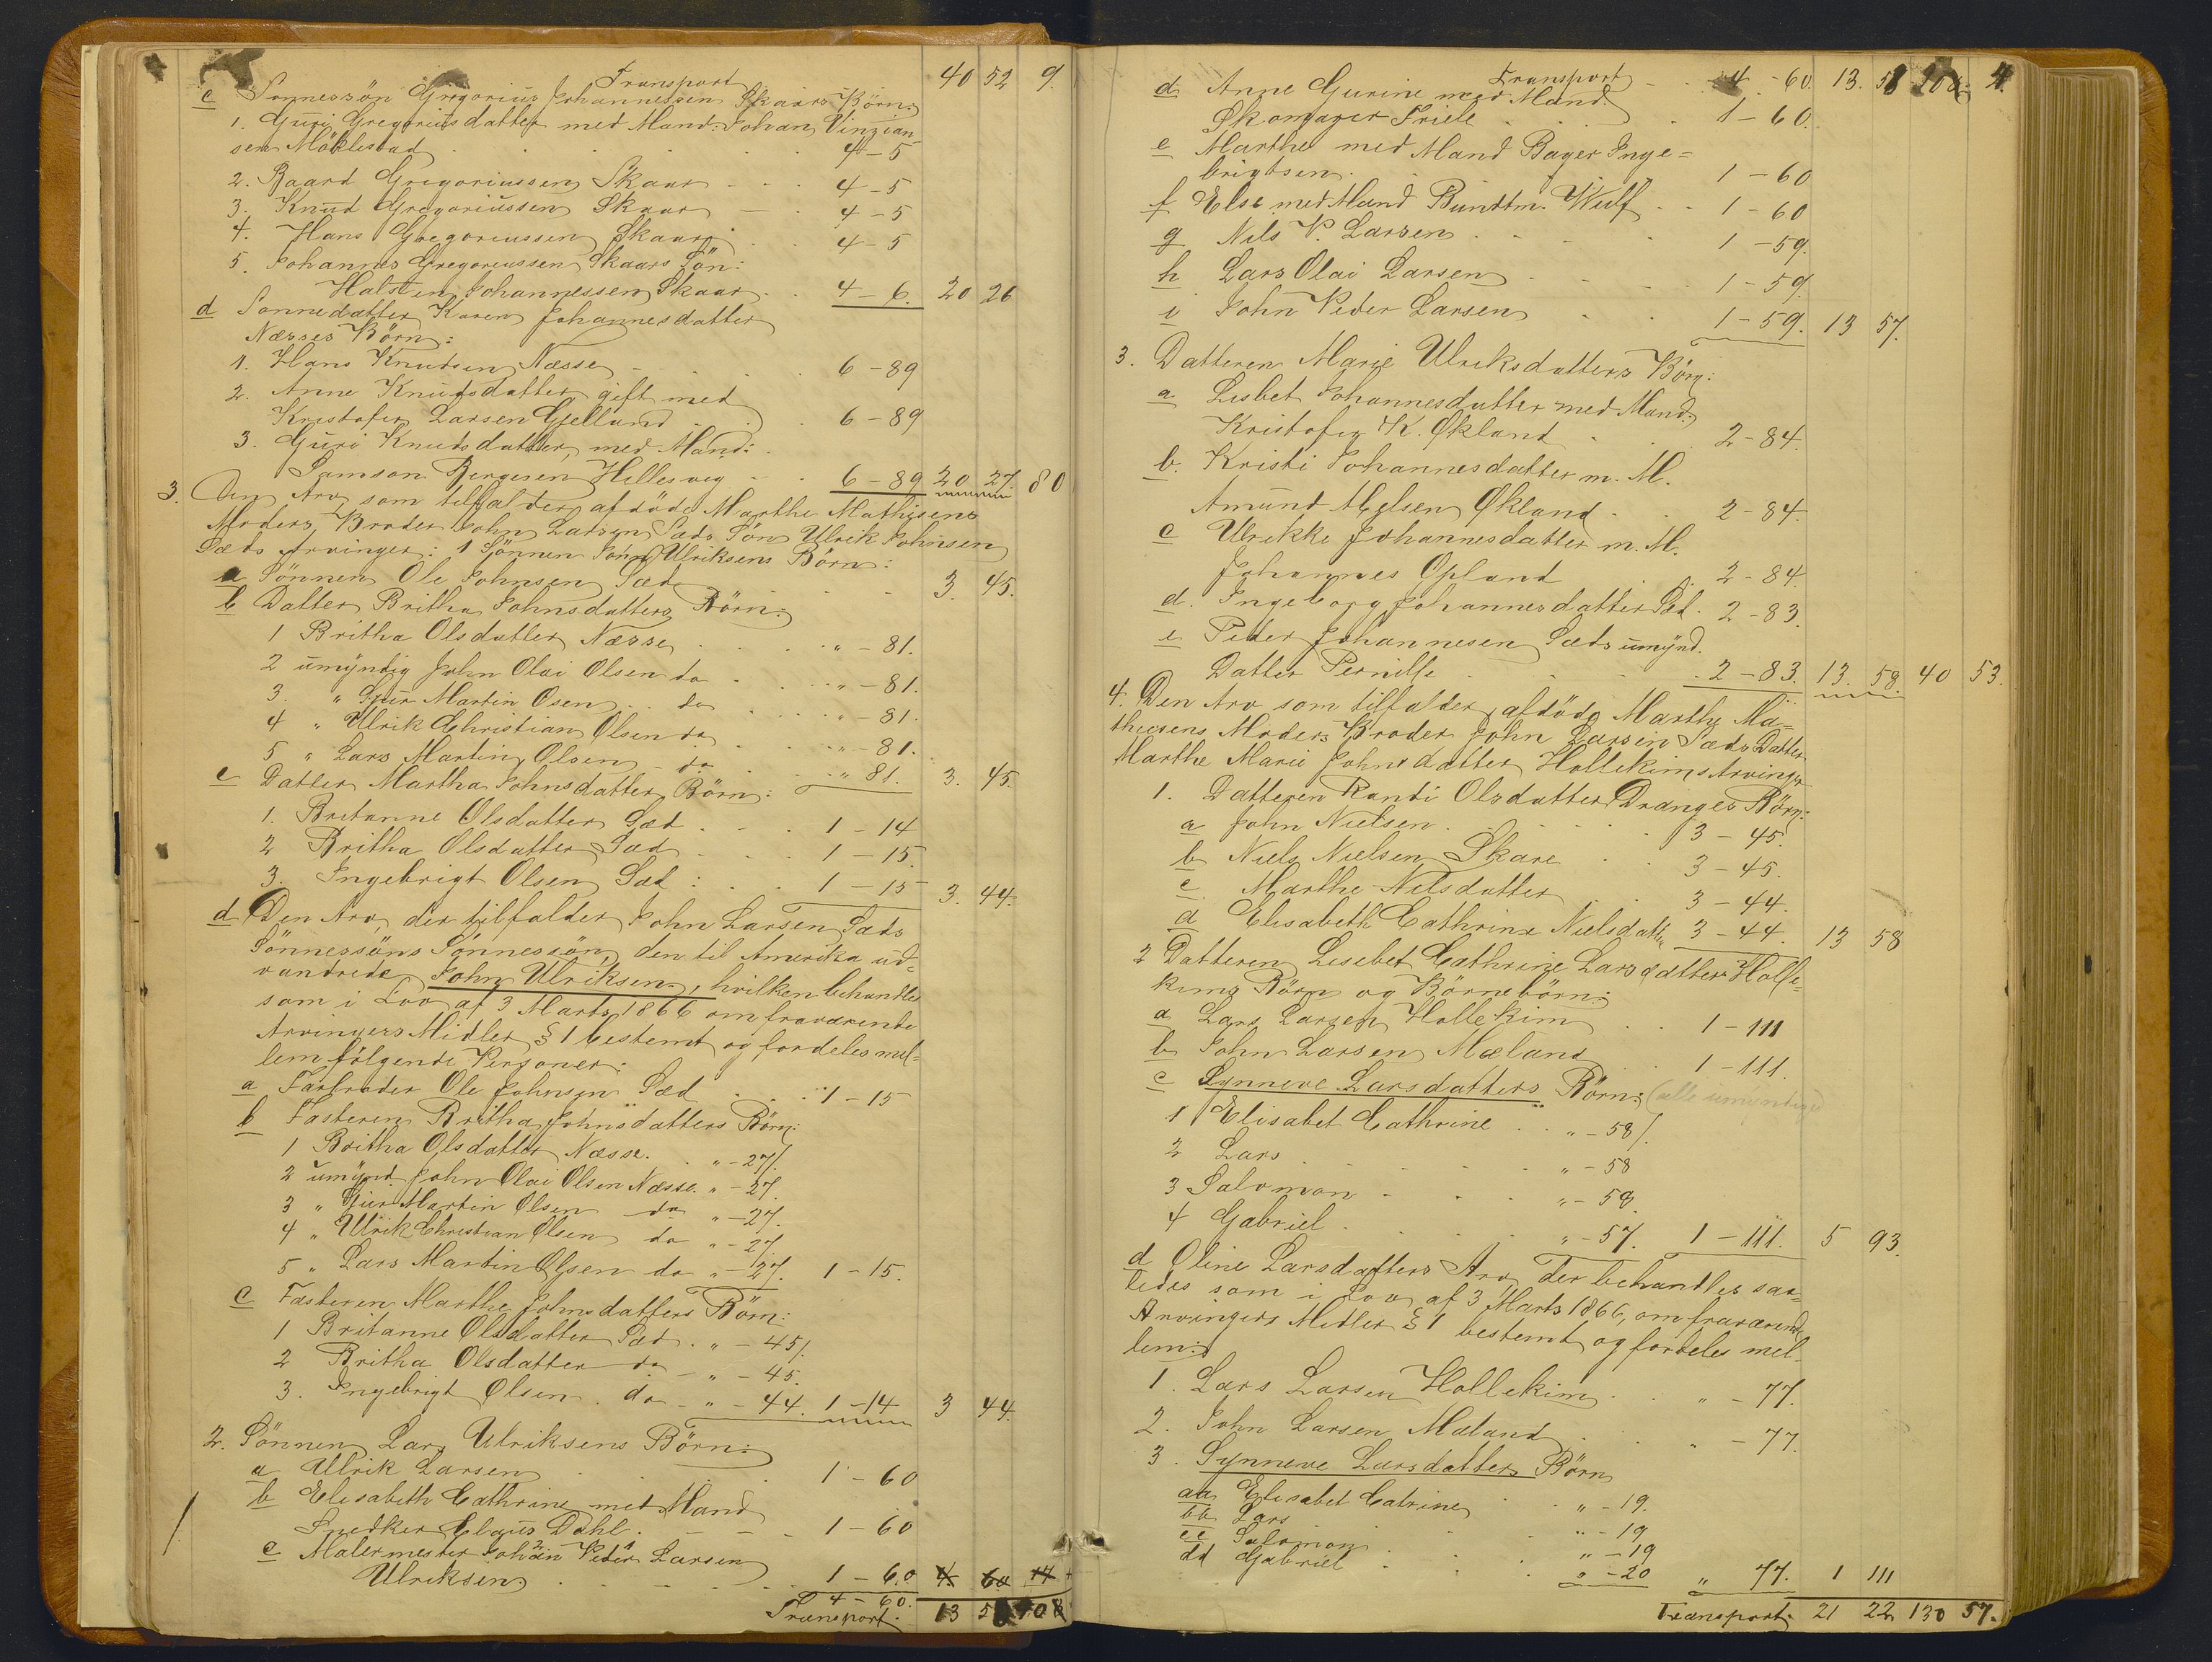 Transport 40 52 9.
c Sønnesøn Gregorius Johannessen Skaars Børn:
1. Guri Gregoriusdatter med Mand: Johan Vinzian
sen Møklestad . . . . 4 – 5
2. Baard Gregoriussen Skaar . . . 4 – 5
3. Knud Gregoriussen Skaar — . 4 – 5
4. Hans Gregoriussen Skaar . . 4 – 5
5. Johannes Gregoriussen Skaars Søn:
Halsten Johannessen Skaar . . 4 – 6. 20 26
d Sønnedatter Karen Johannesdatter
Næsses Børn:
1. Hans Knudsen Næsse . . . 6 – 89
2. Anne Knudsdatter gift med
Kristofer Larsen Gjelland . . 6 – 89
3. Guri Knudsdatter, med Mand:
Samson Bergesen Hillesveg . . 6 – 89 20 27. 80
3. Den Arv som tilfalder afdøde Marthe Mathisens
Moders Broder John Larsen Sæds Søn Ulrik Johnsen
Sæds Arvinger: 1 Sønnen John Ulriksens Børn:
a Sønnen Ole Johnsen Sæd . . . 3. 45.
b Datter Britha Johnsdatters Børn:
1 Britha Olsdatter Næsse . . . " – 81.
2 umyndig John Olai Olsen do . . " – 81.
3. " Martin Osen . . do . . " – 81.
4 " Ulrik Christian Olsen do . . " – 81.
5 " Lars Martin Olsen – do . . " 81. 3. 45.
c Datter Martha Johnsdatter Børn:
1. Britanne Olsdatter Sæd . . . 1 – 14
2 Britha Olsdatter Sæd . . . 1 – 15.
3. Ingebrigt Olsen Sæd : . . 1 – 15 3. 44.
d Den Arv, der tilfalder John Larsen Sæds
Sønnesøns Sønnesøn, den til Amerika ud=
vandrede John Ulriksen, hvilken behandles
som i Lov af 3 Marts 1866 om fraværende
Arvingers Midler § 1 bestemt og fordeles mel=
lem følgende Personer:
a Farbroder Ole Johnsen Sæd . . . 1 – 15
b Fasteren Britha Johnsdatters Børn:
1 Britha Olsdatter Næsse. . " – 27.
2 umynd. John Olai Olsen Næsse. " – 27.
3 " Martin Olsen do " – 27.
4 " Ulrik Christian Olsen do " – 27.
5 " Lars Martin Olsen do " – 27. 1 – 15.
c Fasteren Marthe Johnsdatters Børn:
1 Britanne Olsdatter Sæd . " – 45.
2 Britha Olsdatter do – " – 45.
3. Ingebrigt Olsen . do – " – 44. 1 – 14 3 44.
2. Sønnen Lars Ulriksens Børn:
a Ulrik Larsen . . . 1 – 60
b Elisabeth Cathrine med Mand
Snedker Claus Dahl . — — 1 – 60
c Malermester Johan Peder Larsen
Ulriksen . . . 1 – 60 4. 60 14
4 – 60.
Transport. 13 58 108
Transport . . 4 – 60. 13. 58 108 4.
d Anne Gurine med Mand:
Skomager Friele . . . 1 – 60.
e Marthe med Mand Bager Inge=
brigtsen . . . 1 – 60
f Else med Mand Bundtm. Wulf . . 1 – 60
g Nils P. Larsen . . . 1 – 59.
h Lars Olai Larsen . . . 1 – 59.
i John Peder Larsen . . 1 – 59. 13 57.
3. Datteren Marie Ulriksdatters Børn:
a Lisbet Johannesdatter med Mand:
Kristofer K. Økland . . . 2 – 84.
b. Kristi Johannesdatter m. M.
Amund Økland . . 2 – 84.
c Ulrikke Johannesdatter m. M.
Johannes Opland . . 2 – 84.
d. Ingeborg Johannesdatter Sæd. 2 – 83.
e Peder Johannesen Sæds umynd.
Datter Pernille . . . 2 – 83. 13. 58. 40 53.
4. Den Arv som tilfalder afdøde Marthe Ma=
thiesens Moders Broder John Larsen Sæds Datter
Marthe Marie Johnsdatter Hollekims Arvinger
1. Datteren Randi Olsdatter Dranges Børn:
a John Nielsen . . . . 3 – 45.
b Niels Nielsen Skare . . 3 – 45.
c Marthe Nilsdatter . . 3 – 44.
d Elisabeth Cathrine Nielsdatter 3 – 44. 13 58
2 Datteren Lisebet Cathrine Larsdatter Holle=
kims Børn og Børnebørn:
a Lars Larsen Hollekim . . 1 – 111
b John Larsen Mæland . . 1 – 111.
c Synneve Larsdatters Børn: (alle umyndige)
1 Elisabet Cathrine . . " – 58.
2 Lars . . . . " – 58
3 Salomon . . . " – 58.
4 Gabriel . . . " – 57. 1 – 111. 5 93.
d Oline Larsdatters Arv, der behandles saa=
ledes som i Lov af 3 Marts 1866, om fraværende
Arvingers Midler § 1 bestemt og fordeles mel-
lem:
1. Lars Larsen Hollekim . . " – 77.
2. John Larsen Mæland . . " – 77.
3. Synneve Larsdatters Børn
aa Elisabet Catrine . . " – 19.
bb Lars . . . " – 19
cc Salomon . . . " – 19
dd Gabriel . . . " – 20 " 77. 1 111
Transport. 21 22 130 57.